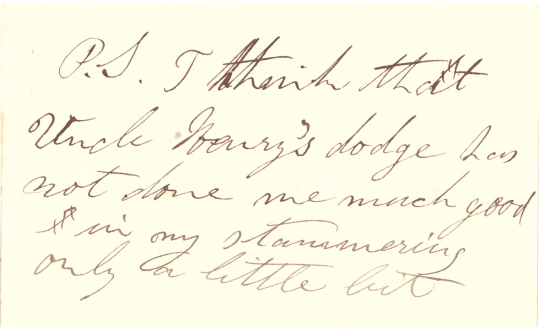 P.S. I think that
Uncle Henry's dodge has
not done me much good
in my stammering
only a little bit